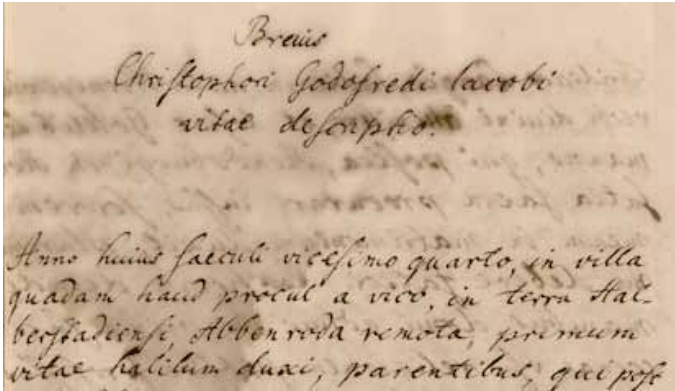 Breuis
Christophori Godofredi Iacobi
vitae descriptio.
Anno huius saeculi vicesimo quarto, in villa
quadam haud procul a vico, in terra Hal-
berstadiensi, Abbenroda remota, primum
vitae halitum duxi, parentibus, qui pose